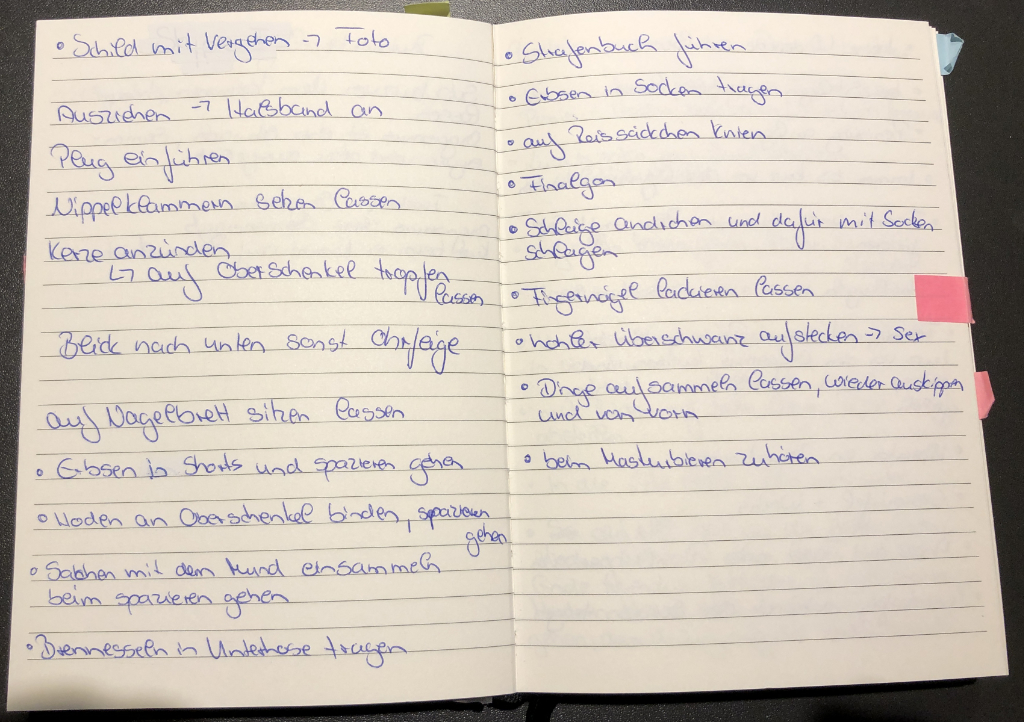 • Schild mit Vergehen → Foto
Ausziehen → Halsband an
Plug einführen
Nippelklammern setzen lassen
Kerze anzünden
↳ auf Oberschenkel tropfen
lassen
Blick nach unten sonst Ohrfeige
auf Nagelbrett sitzen lassen
• Erbsen in Shorts und spazieren gehen
• Hoden an Oberschenkel binden, spazieren
gehen
• Sachen mit dem Mund einsammeln
beim spazieren gehen
• Brennesseln in Unterhose tragen
• Strafenbuch führen
• Erbsen in Socken tragen
• auf Reissäckchen knien
• Finalgon
• Schläge androhen und dafür mit Socken
schlagen
• Fingernägel lackieren lassen
• hohler Überschwanz aufstecken → Sex
• Dinge aufsammeln lassen, wieder auskippen
und von vorn
• beim Masturbieren zuhören